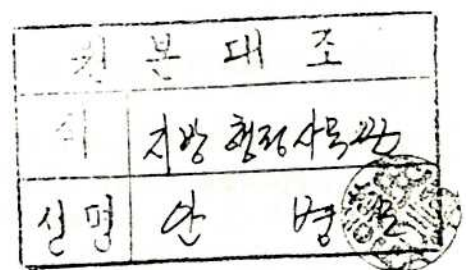 원본대조
직 지방행정사무관
성명 안 병